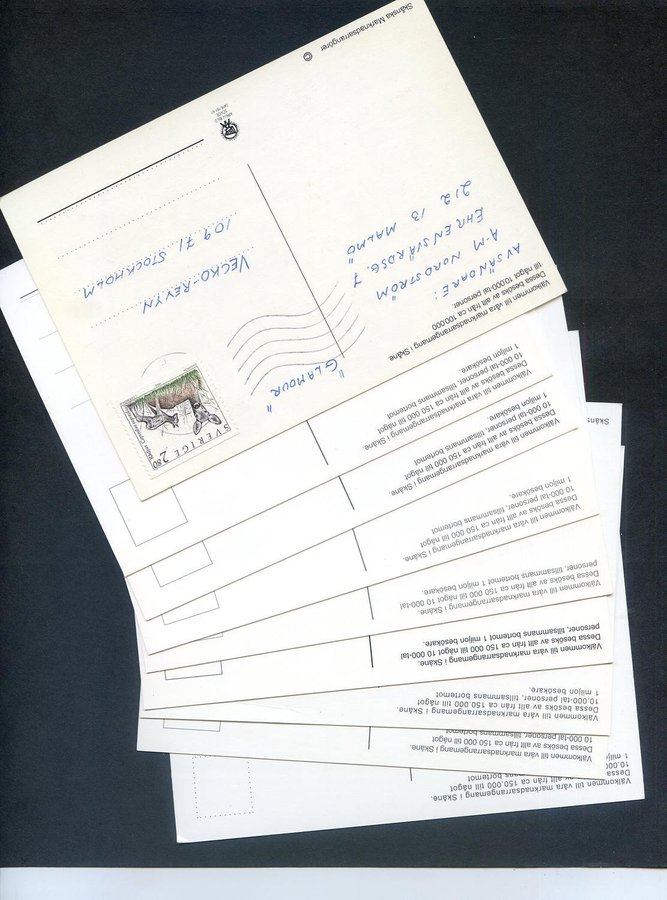 Välkommen till våra marknadsarrangemang i Skåne.
Dessa besöks av allt från ca 100.000
till något 10.000-tal personer.
AVSÄNDARE:
A-M NORDSTRÖM
EHRENSVÄRDSG. 7
212 13 MALMÖ
"GLAMOUR"
VECKO-REVYN
109 71 STOCKHOLM
SVERIGE 2.80
© Skånska Marknadsarrangörer
Välkommen till våra marknadsarrangemang i Skåne.
Dessa besöks av allt från ca 150 000 till något
10 000-tal personer, tillsammans bortemot
1 miljon besökare.
Välkommen till våra marknadsarrangemang i Skåne.
Dessa besöks av allt från ca 150 000 till något
10 000-tal personer, tillsammans bortemot
Välkommen till våra marknadsarrangemang i Skåne.
Dessa besöks av allt från ca 150 000 till något
10 000-tal personer, tillsammans bortemot
1 miljon besökare.
Välkommen till våra marknadsarrangemang i Skåne.
Dessa besöks av allt från ca 150 000 till något 10 000-tal
personer, tillsammans bortemot 1 miljon besökare.
Välkommen till våra marknadsarrangemang i Skåne.
Dessa besöks av allt från ca 150 000 till något 10 000-tal
personer, tillsammans bortemot 1 miljon besökare.
Välkommen till våra marknadsarrangemang i Skåne.
Dessa besöks av allt från ca 150.000 till något
10.000-tal personer, tillsammans bortemot
1 miljon besökare.
Välkommen till våra marknadsarrangemang i Skåne.
Dessa besöks av allt från ca 150 000 till något
10 000-tal personer, tillsammans bortemot
Välkommen till våra marknadsarrangemang i Skåne.
Dessa besöks av allt från ca 150.000 till något
10.000
1 milj
Skåns